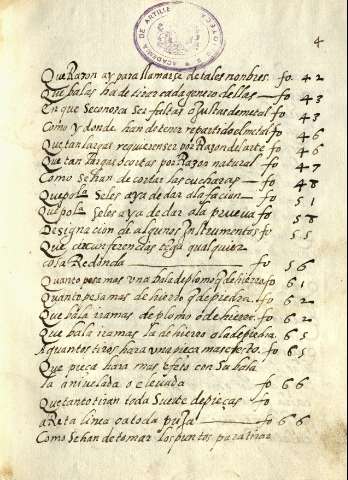 ACADEMIA DE ARTILLE
4
Que Razon ay para llamarse de tales nonbres. fo. 42
Que balas ha de tirar cada genero dellas — fo 43
En que se conoza ser faltas o justas de metal fo 43
Como y donde han de tener repartido el metal fo 46
Que tan largas requieren ser por Razon del arte fo 46
Que tan largas o cortas por Razon natural fo 47
Como se han de cortar las cucharas — fo 48
Que pol.a se les aya de dar a la facion — fo 51
Que pol.a se les aya de dar a la prueva fo 58
Designacion de algunos Instrumentos fo 55
Que circunferencias tenga qualquier
cosa Redonda — fo 56
Quanto pesa mas una bala de plomo q de hierro fo 61
Quanto pesa mas de hierro q de piedra. fo 62
Que bala ira mas de plomo o de hierro. fo 62
Que bala ira mas la de hierro o la de piedra. fo 65
A quantos tiros hara una pieça mas efecto. fo 65
Que pieça hara mas efeto con su bala
la anivelada o elevada fo 66
Que tanto tiran toda suerte de pieças fo
a Reta linea o a toda — fo 66
Como se han de tomar los puntos para tirar